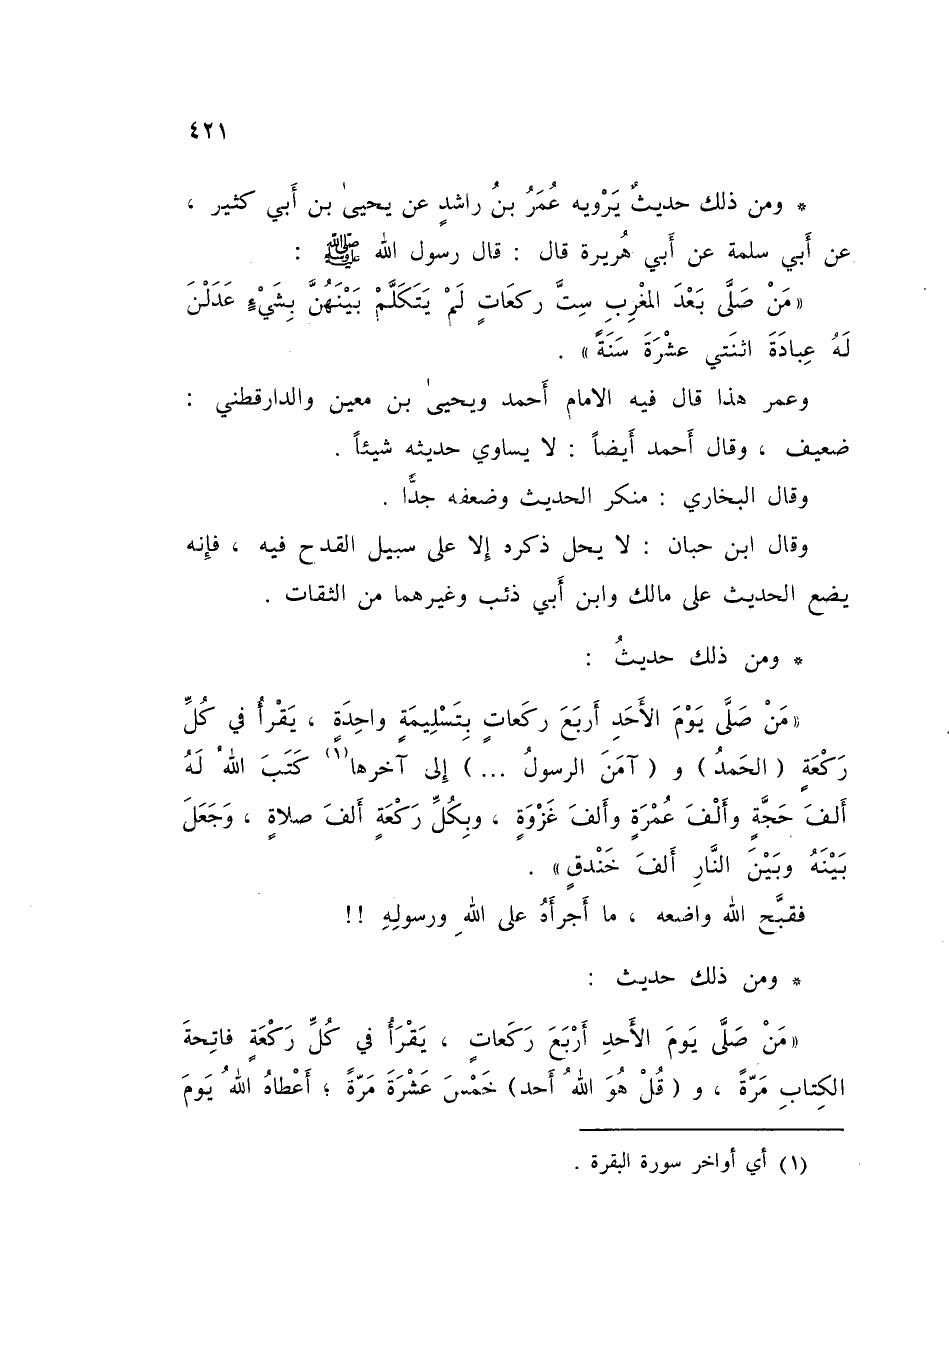 ٤٢١
* ومن ذلك حديثٌ يَرْويه عُمَرُ بنُ راشدٍ عن يحيىٰ بن أَبي كثير ،
عن أَبي سلمة عن أَبي هُريرة قال : قال رسول الله ﷺ :
«مَنْ صَلَّى بَعْدَ المغْربِ سِتَّ ركعَاتٍ لَمْ يَتَكَلَّمْ بَيْنَهُنَّ بِشَيْءٍ عَدَلْنَ
لَهُ عِبادَةَ اثنَتي عشْرَةَ سَنَةً» .
وعمر هذا قال فيه الامام أَحمد ويحيىٰ بن معين والدارقطني :
ضعيف ، وقال أَحمد أَيضاً : لا يساوي حديثه شيئاً .
وقال البخاري : منكر الحديث وضعفه جدًّا .
وقال ابن حبان : لا يحل ذكره إلا على سبيل القدح فيه ، فإنه
يضع الحديث على مالك وابن أَبي ذئب وغيرهما من الثقات .
* ومن ذلك حديثُ :
«مَنْ صَلَّى يَوْمَ الأَحَدِ أَربَعَ ركَعاتٍ بِتَسْلِيمَةٍ واحِدَةٍ ، يَقْرأُ في كُلِّ
رَكْعَةٍ (الحَمدُ) و (آمَنَ الرسولُ ...) إلى آخرها(١) كَتَبَ اللهُ لَهُ
أَلفَ حَجَّةٍ وأَلْفَ عُمْرَةٍ وأَلفَ غَزْوَةٍ ، وبِكُلِّ رَكْعَةٍ أَلفَ صلاةٍ ، وَجَعَلَ
بَيْنَهُ وبَيْنَ النَّارِ أَلفَ خَنْدقٍ» .
فقبَّح الله واضعه ، ما أَجرأَهُ على اللهِ ورسولِهِ !!
* ومن ذلك حديث :
«مَنْ صَلَّى يَومَ الأَحدِ أَرْبَعَ رَكَعاتٍ ، يَقْرَأُ في كُلِّ رَكْعَةٍ فاتِحةَ
الكِتابِ مَرّةً ، و (قُلْ هُوَ اللهُ أَحد) خَمْسَ عَشْرَةَ مَرّةً ؛ أَعْطاهُ اللهُ يَومَ
(١) أي أواخر سورة البقرة .